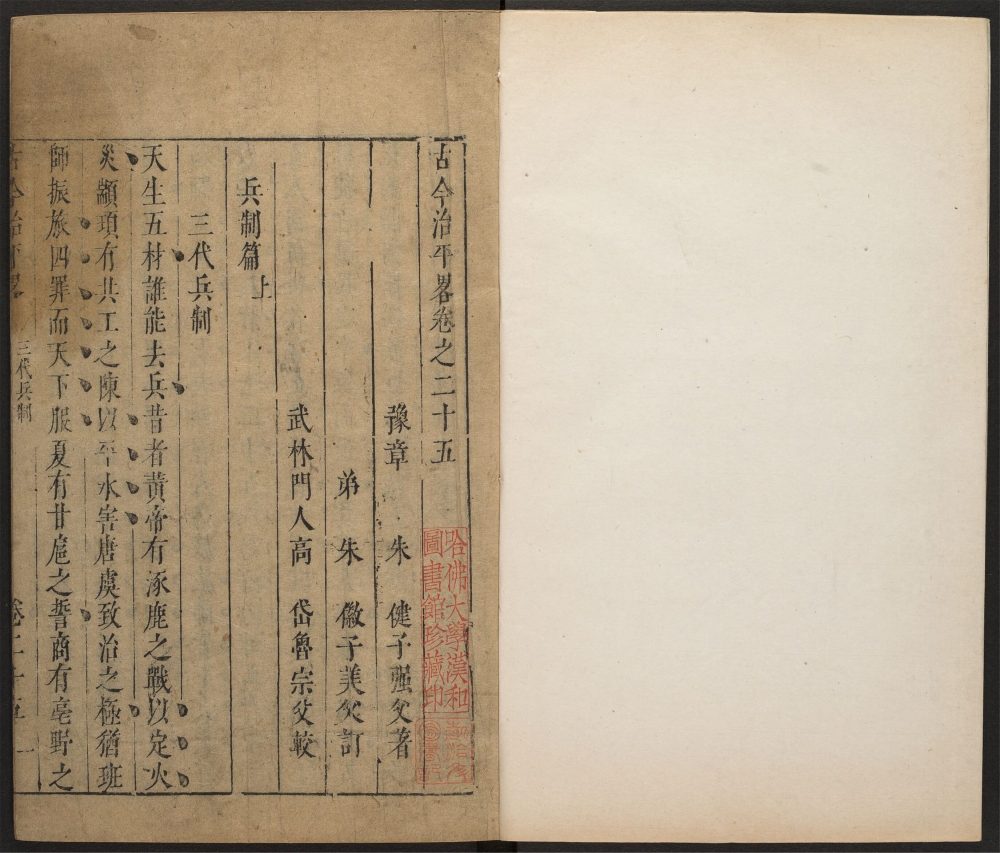 古今治平畧卷之二十五
豫章 朱 健子强父著
弟 朱 徽子美父訂
武林門人高 岱魯宗父較
兵制篇上
三代兵制
天生五材誰能去兵昔者黃帝有涿鹿之戰以定火
災顓頊有共工之陳以平水害唐虞致治之極猶班
師振旅四罪而天下服夏有甘扈之誓商有亳野之
古今治平畧 三代兵制 卷二十五 一
哈佛大學漢和
圖書館珍藏印